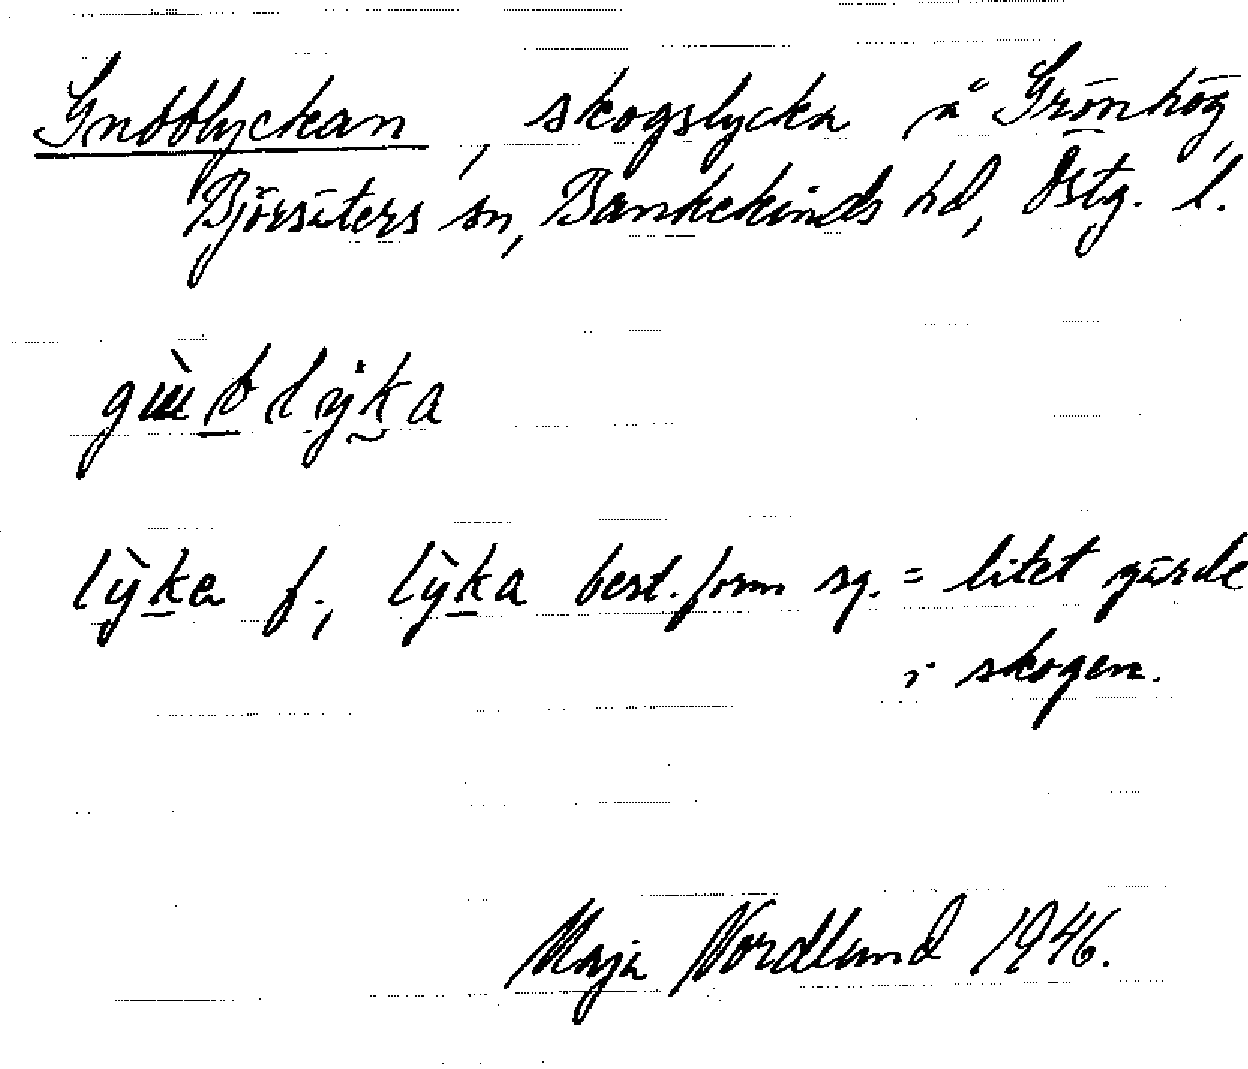 Gnobblyckan, skogslycka å Grönhög,
Björsäters sn, Bankekinds hd, Östg. l.
lỳka f., lỳka best. form sg. = litet gärde
i skogen.
Maja Nordlund 1946.